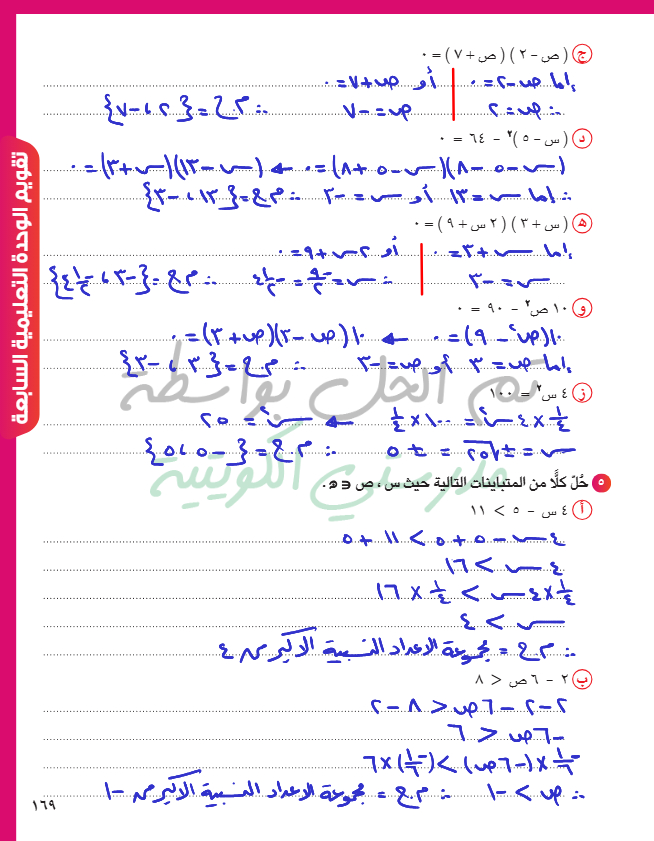 ج (ص - ٢)(ص + ٧) = ٠
إما ص - ٢ = ٠ أو ص + ٧ = ٠
∴ ص = ٢ ص = -٧ ∴ م.ح = {٢ ، -٧}
د (س - ٥)² - ٦٤ = ٠
(س - ٥ - ٨)(س - ٥ + ٨) = ٠ ⇐ (س - ١٣)(س + ٣) = ٠
∴ إما س = ١٣ أو س = -٣ ∴ م.ح = {١٣ ، -٣}
هـ (س + ٣)(٢س + ٩) = ٠
إما س + ٣ = ٠ أو ٢س + ٩ = ٠
س = -٣ ∴ س = -٩/٢ = -٤ ١/٢ ∴ م.ح = {-٣ ، -٤ ١/٢}
و ١٠ص² - ٩٠ = ٠
١٠(ص² - ٩) = ٠ ⇐ ١٠(ص - ٣)(ص + ٣) = ٠
إما ص = ٣ أو ص = -٣ ∴ م.ح = {٣ ، -٣}
ز ٤س² = ١٠٠
١/٤ × ٤س² = ١٠٠ × ١/٤ ⇐ س² = ٢٥
س = ±√٢٥ = ±٥ ∴ م.ح = {-٥ ، ٥}
٥ حُلّ كلًّا من المتباينات التالية حيث س ، ص ∋ ن .
أ ٤س - ٥ > ١١
٤س - ٥ + ٥ > ١١ + ٥
٤س > ١٦
١/٤ × ٤س > ١/٤ × ١٦
س > ٤
∴ م.ح = مجموعة الاعداد النسبية الأكبر من ٤
ب ٢ - ٦ص < ٨
٢ - ٢ - ٦ص < ٨ - ٢
-٦ص < ٦
-١/٦ × (-٦ص) > (-١/٦) × ٦
∴ ص > -١ ∴ م.ح = مجموعة الاعداد النسبية الأكبر من -١
١٦٩
تقويم الوحدة التعليمية السابعة
تم الحل بواسطة
مدرستي الكويتية